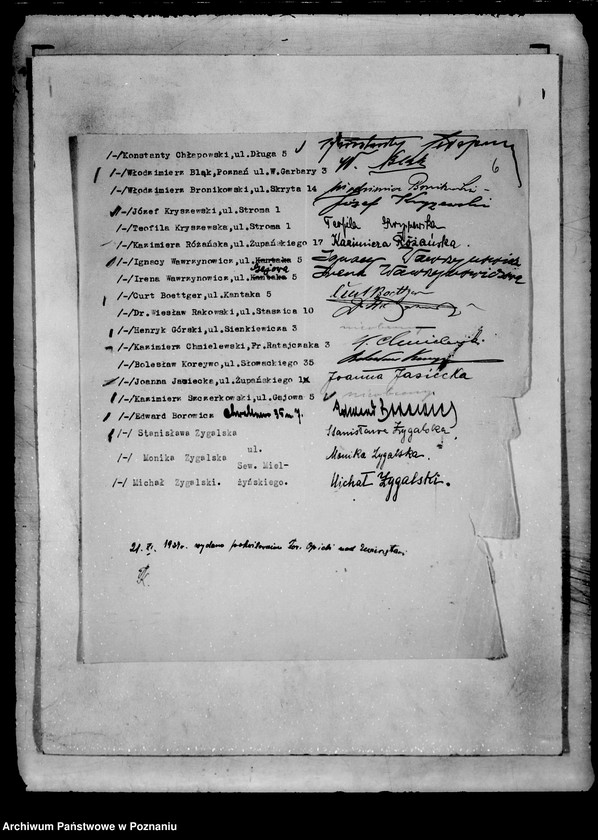 6
/-/Konstanty Chłapowski,ul.Długa 5
/-/Włodzimierz Bląk,Poznań ul.W.Garbary 3 W. Bląk
/-/Włodzimierz Bronikowski ul.Skryta 14 Włodzimierz Bronikowski
/-/Józef Kryszewski,ul.Stroma 1 Józef Kryszewski
/-/Teofila Kryszewska,ul.Stroma 1 Teofila Kryszewska
/-/Kazimiera Różańska,ul.Żupańskiego 17 Kazimiera Różańska.
/-/Ignacy Wawrzynowicz,ul.Kantaka 5 Ignacy Wawrzynowicz
Gajowa
/-/Irena Wawrzynowicz,ul.Kantaka 5 Irena Wawrzynowiczowa
/-/Curt Boettger,ul.Kantaka 5 Curt Boettger
/-/Dr.Wiesław Rakowski,ul.Staszica 10
/-/Henryk Górski,ul.Sienkiewicza 3
/-/Kazimierz Chmielewski,Fr.Ratajczaka 3 K. Chmielewski
/-/Bolesław Koreywo,ul.Słowackiego 35
/-/Joanna Jasiecka,ul.Żupańskiego 1 Joanna Jasiecka
/-/Kazimierz Szczerkowski,ul.Gajowa 5
/-/Edward Borowicz 35 m 7. Edward
/-/ Stanisława Zygalska Stanisława Zygalska.
ul.
/-/ Monika Zygalska Monika Zygalska.
Sew. Miel-
/-/ Michał Zygalski. żyńskiego. Michał Zygalski.
21. XI. 1931r. wydano Tow. Opieki nad Zwierzętami
Archiwum Państwowe w Poznaniu